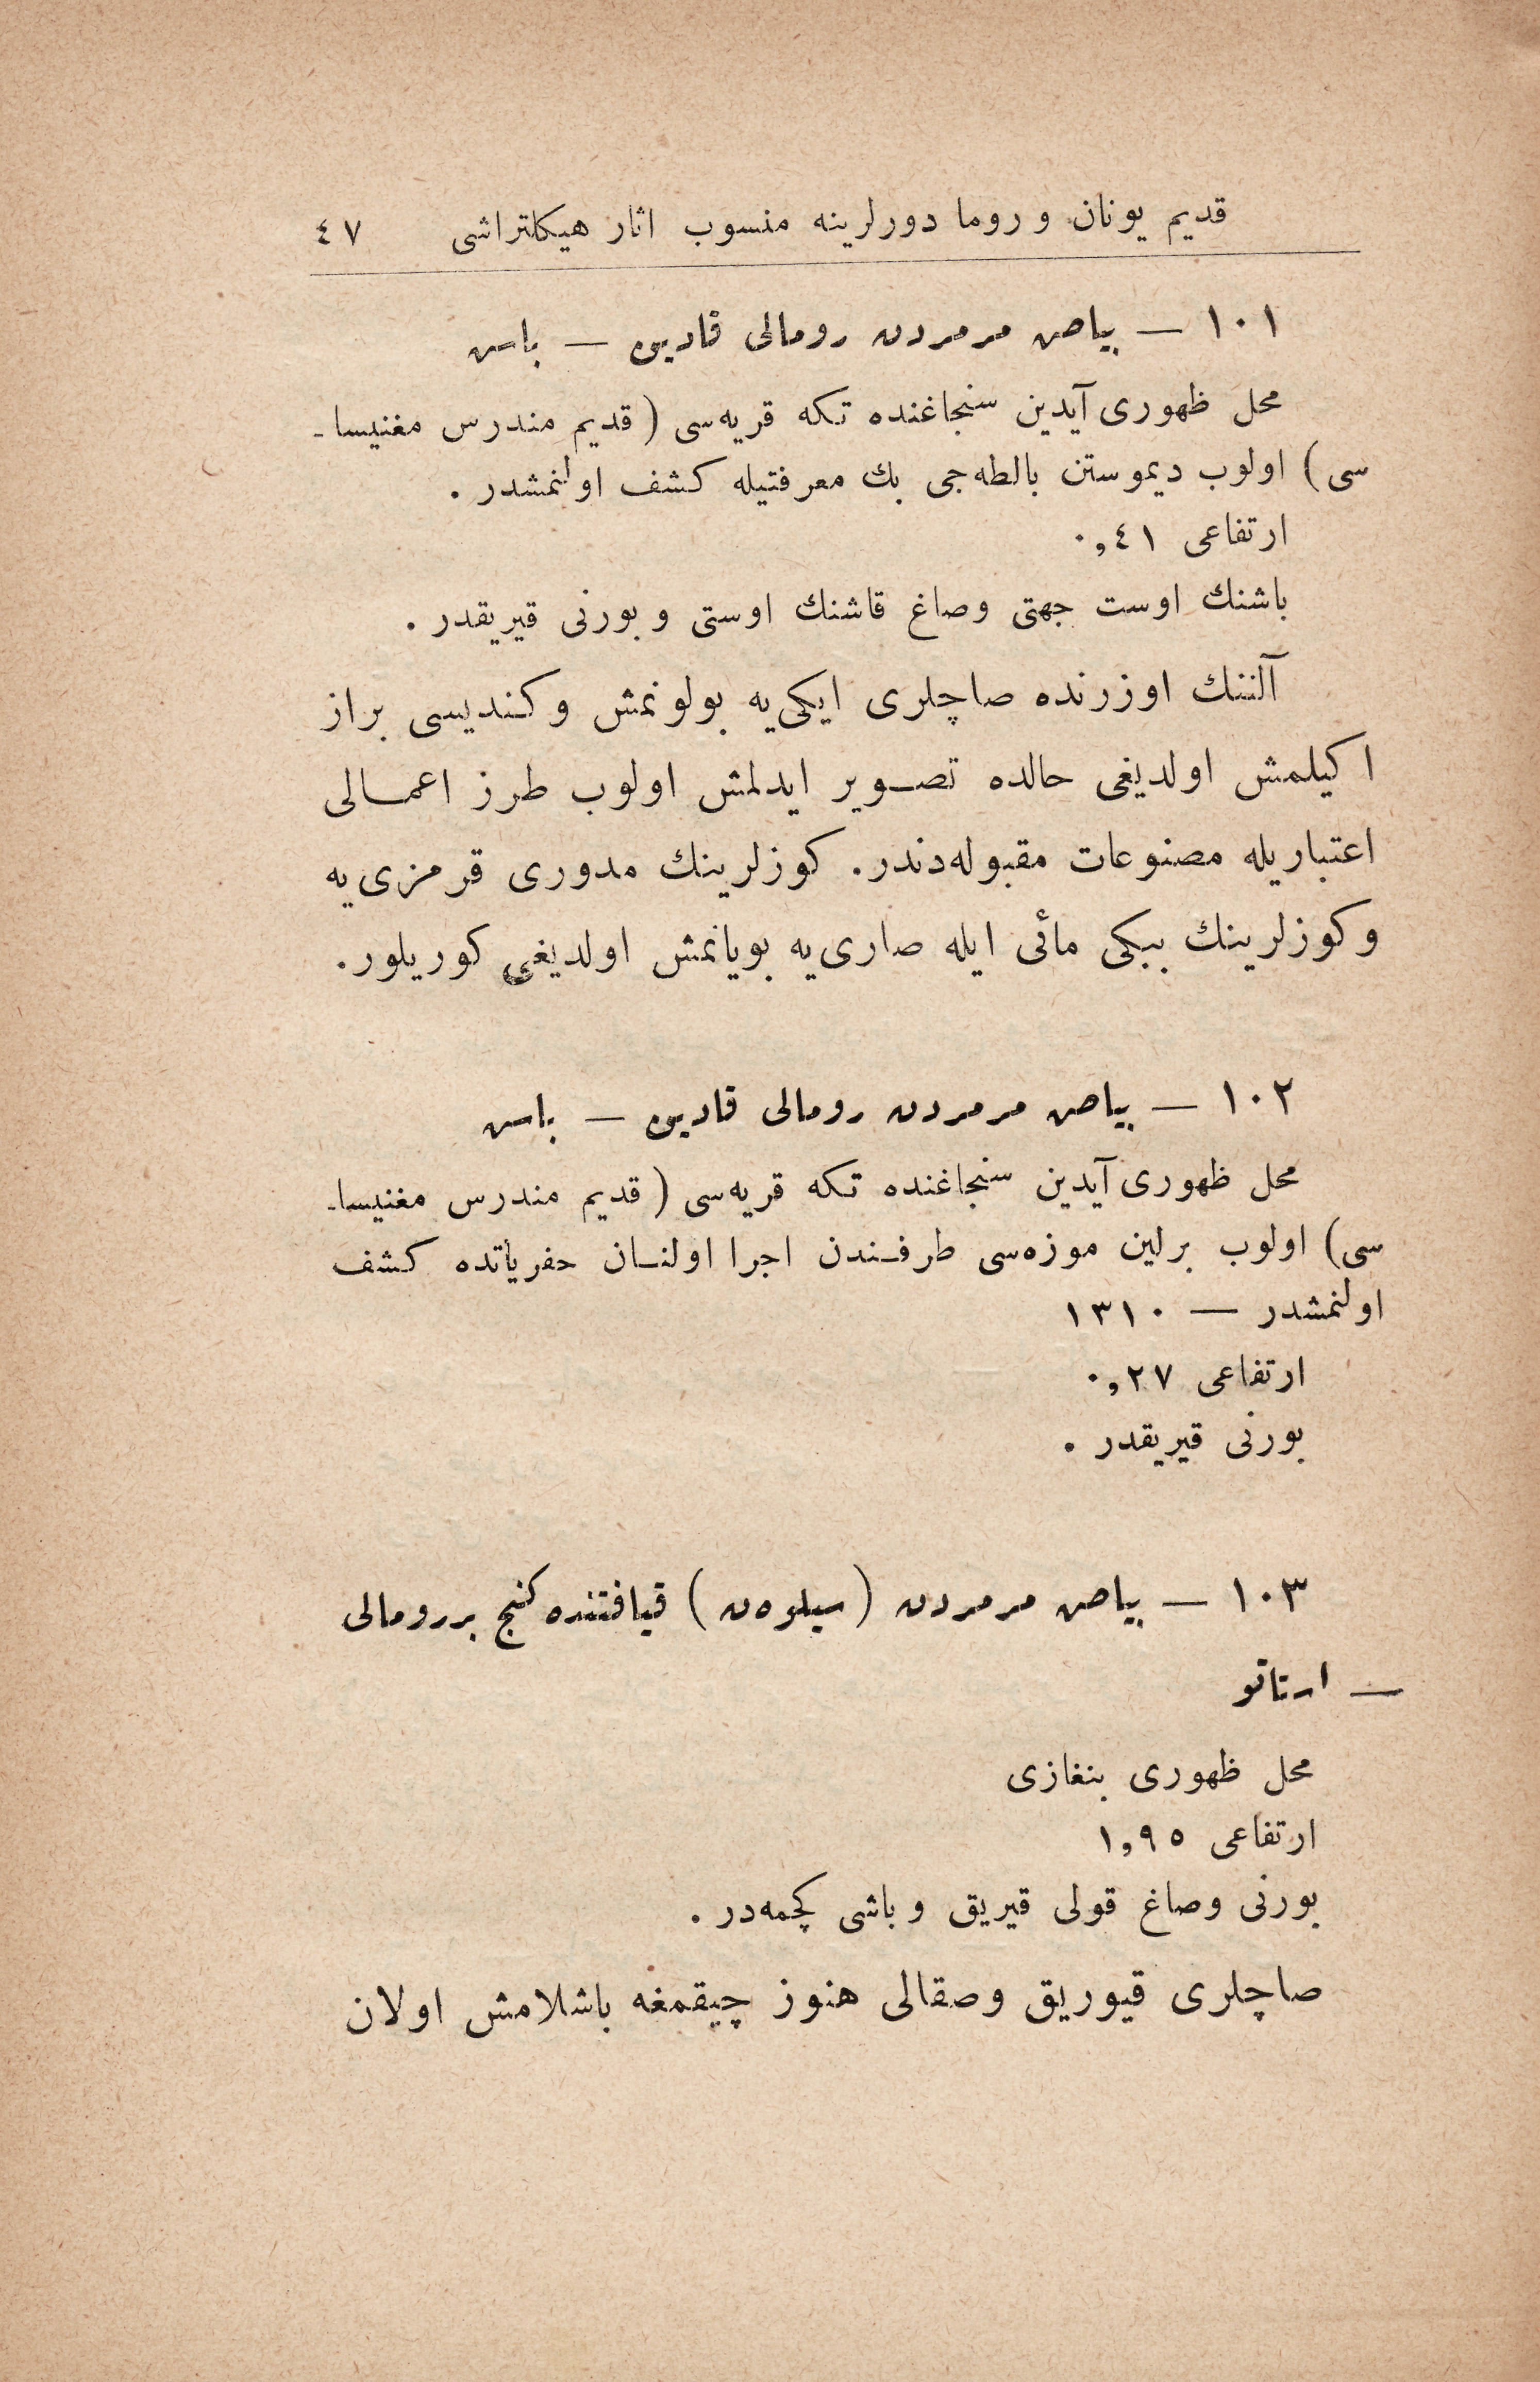 قدیم یونان و روما دورلرینه منسوب اثار هیکلتراشی ٤٧
١٠١ — بیاض مرمردن رومالی قادین — باش
محل ظهوری آیدین سنجاغنده تکه قریه‌سی (قدیم مندرس مغنیسا-
سی) اولوب دیموستن بالطه‌جی بك معرفتیله کشف اولنمشدر .
ارتفاعی ٠,٤١
باشنك اوست جهتی وصاغ قاشنك اوستی و بورنی قیریقدر .
آلننك اوزرنده صاچلری ایکی‌یه بولونمش وکندیسی براز
اکیلمش اولدیغی حالده تصویر ایدلمش اولوب طرز اعمالی
اعتباریله مصنوعات مقبوله‌دندر. کوزلرینك مدوری قرمزی‌یه
وکوزلرینك ببکی مائی ایله صاری‌یه بویانمش اولدیغی کوریلور.
١٠٢ — بیاض مرمردن رومالی قادین — باش
محل ظهوری آیدین سنجاغنده تکه قریه‌سی (قدیم مندرس مغنیسا-
سی) اولوب برلین موزه‌سی طرفندن اجرا اولنان حفریاتده کشف
اولنمشدر — ١٣١٠
ارتفاعی ٠,٢٧
بورنی قیریقدر .
١٠٣ — بیاض مرمردن (سیلوه‌ن) قیافتنده کنج بررومالی
— ارتاقو
محل ظهوری بنغازی
ارتفاعی ١,٩٥
بورنی وصاغ قولی قیریق و باشی کچمه‌در .
صاچلری قیوریق وصقالی هنوز چیقمغه باشلامش اولان